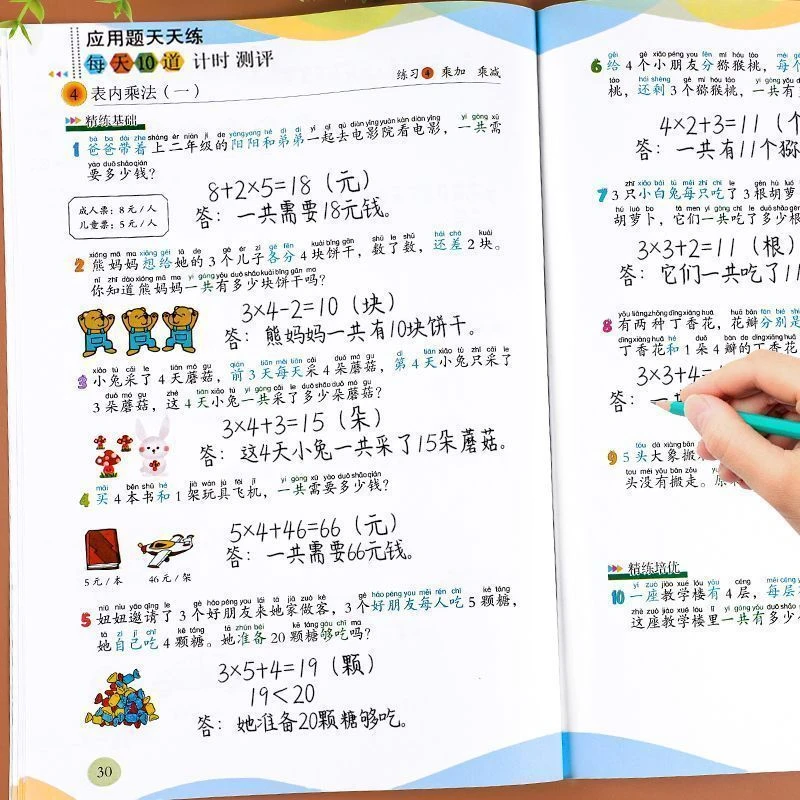 应用题天天练
每天10道 计时 测评
练习4 乘加 乘减
4 表内乘法（一）
精练基础
1 爸爸带着上二年级的阳阳和弟弟一起去电影院看电影，一共需
要多少钱？
成人票：8元/人
儿童票：5元/人
8+2×5=18（元）
答：一共需要18元钱。
2 熊妈妈想给她的3个儿子各分4块饼干，数了数，还差2块。
你知道熊妈妈一共有多少块饼干吗？
3×4-2=10（块）
答：熊妈妈一共有10块饼干。
3 小兔采了4天蘑菇，前3天每天采4朵蘑菇，第4天小兔只采了
3朵蘑菇，这4天小兔一共采了多少朵蘑菇？
3×4+3=15（朵）
答：这4天小兔一共采了15朵蘑菇。
4 买4本书和1架玩具飞机，一共需要多少钱？
5元/本 46元/架
5×4+46=66（元）
答：一共需要66元钱。
5 妞妞邀请了3个好朋友来她家做客，3个好朋友每人吃5颗糖，
她自己吃4颗糖。她准备20颗糖够吃吗？
3×5+4=19（颗）
19<20
答：她准备20颗糖够吃。
30
6 给4个小朋友分猕猴桃，每个
桃，还剩3个猕猴桃，一共有
4×2+3=11（个
答：一共有11个猕
7 3只小白兔每只吃了3根胡萝
胡萝卜，它们一共吃了多少根
3×3+2=11（根）
答：它们一共吃了11
8 有两种丁香花，花瓣分别是
丁香花和1朵4瓣的丁香花
3×3+4=
答：一共
9 5头大象搬
头没有搬走。原来
精练培优
10 一座教学楼有4层，每层
这座教学楼里一共有多少个